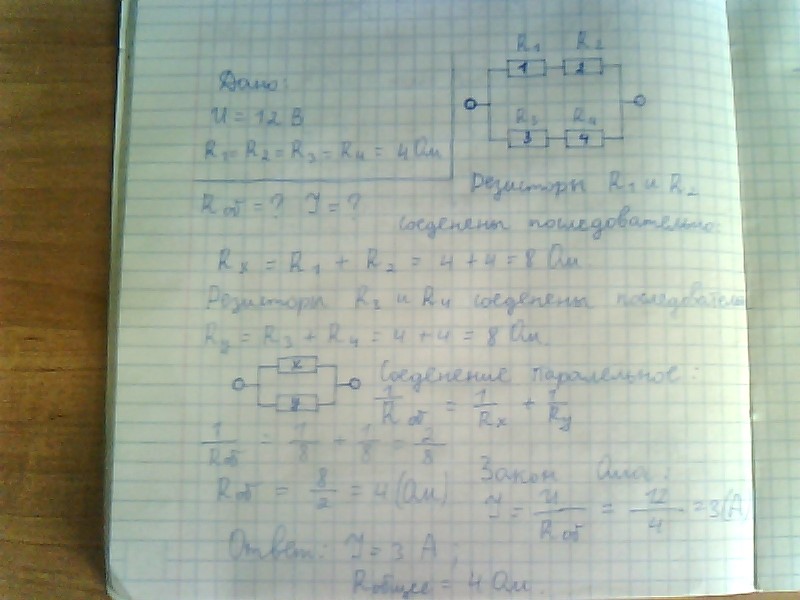 R1 R2
1 2
R3 R4
3 4
Дано:
U = 12 В
R1=R2=R3=R4 = 4 Ом
Rоб = ? I = ?
Резисторы R1 и R2
соеденены последовательно:
Rx = R1 + R2 = 4 + 4 = 8 Ом
Резисторы R3 и R4 соеденены последователь
Ry = R3 + R4 = 4 + 4 = 8 Ом.
x
y
Соеденение паралельное:
1/Rоб = 1/Rx + 1/Ry
1/Rоб = 1/8 + 1/8 = 2/8
Rоб = 8/2 = 4 (Ом)
Закон Ома:
I = U/Rоб = 12/4 = 3(А)
Ответ: I = 3 А;
Rобщее = 4 Ом.